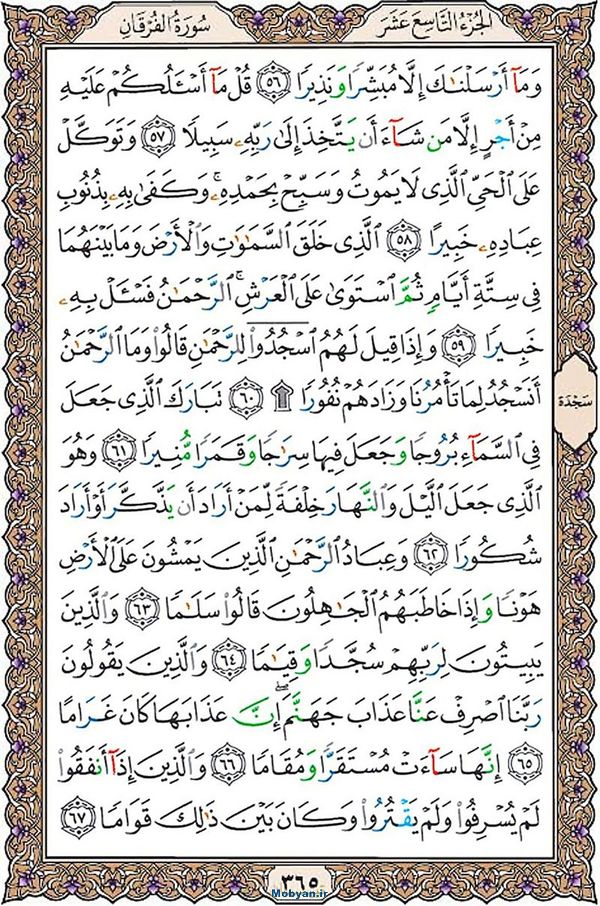 سُورَةُ الفُرْقَانِ
الجُزءُ التَّاسِعَ عَشَرَ
وَمَآ أَرْسَلْنَٰكَ إِلَّا مُبَشِّرًا وَنَذِيرًا ٥٦ قُلْ مَآ أَسْـَٔلُكُمْ عَلَيْهِ
مِنْ أَجْرٍ إِلَّا مَن شَآءَ أَن يَتَّخِذَ إِلَىٰ رَبِّهِۦ سَبِيلًا ٥٧ وَتَوَكَّلْ
عَلَى ٱلْحَىِّ ٱلَّذِى لَا يَمُوتُ وَسَبِّحْ بِحَمْدِهِۦ ۚ وَكَفَىٰ بِهِۦ بِذُنُوبِ
عِبَادِهِۦ خَبِيرًا ٥٨ ٱلَّذِى خَلَقَ ٱلسَّمَٰوَٰتِ وَٱلْأَرْضَ وَمَا بَيْنَهُمَا
فِى سِتَّةِ أَيَّامٍ ثُمَّ ٱسْتَوَىٰ عَلَى ٱلْعَرْشِ ۚ ٱلرَّحْمَٰنُ فَسْـَٔلْ بِهِۦ
خَبِيرًا ٥٩ وَإِذَا قِيلَ لَهُمُ ٱسْجُدُوا۟ لِلرَّحْمَٰنِ قَالُوا۟ وَمَا ٱلرَّحْمَٰنُ
أَنَسْجُدُ لِمَا تَأْمُرُنَا وَزَادَهُمْ نُفُورًا ۩ ٦٠ تَبَارَكَ ٱلَّذِى جَعَلَ
سَجدَة
فِى ٱلسَّمَآءِ بُرُوجًا وَجَعَلَ فِيهَا سِرَٰجًا وَقَمَرًا مُّنِيرًا ٦١ وَهُوَ
ٱلَّذِى جَعَلَ ٱلَّيْلَ وَٱلنَّهَارَ خِلْفَةً لِّمَنْ أَرَادَ أَن يَذَّكَّرَ أَوْ أَرَادَ
شُكُورًا ٦٢ وَعِبَادُ ٱلرَّحْمَٰنِ ٱلَّذِينَ يَمْشُونَ عَلَى ٱلْأَرْضِ
هَوْنًا وَإِذَا خَاطَبَهُمُ ٱلْجَٰهِلُونَ قَالُوا۟ سَلَٰمًا ٦٣ وَٱلَّذِينَ
يَبِيتُونَ لِرَبِّهِمْ سُجَّدًا وَقِيَٰمًا ٦٤ وَٱلَّذِينَ يَقُولُونَ
رَبَّنَا ٱصْرِفْ عَنَّا عَذَابَ جَهَنَّمَ ۖ إِنَّ عَذَابَهَا كَانَ غَرَامًا
٦٥ إِنَّهَا سَآءَتْ مُسْتَقَرًّا وَمُقَامًا ٦٦ وَٱلَّذِينَ إِذَآ أَنفَقُوا۟
لَمْ يُسْرِفُوا۟ وَلَمْ يَقْتُرُوا۟ وَكَانَ بَيْنَ ذَٰلِكَ قَوَامًا ٦٧
٣٦٥
Mobyan.ir